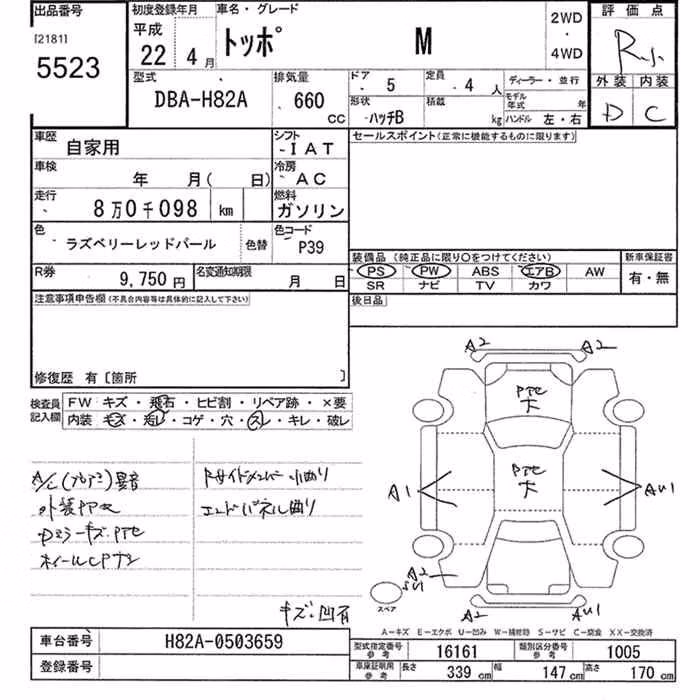 出品番号
[2181]
5523
初度登録年月
平成
22 4月
車名・グレード
トッポ M
2WD
・
4WD
評価点
R
外装 内装
D C
型式
DBA-H82A
排気量
660
CC
ドア 5
定員 4 人
ディーラー・並行
形状 ハッチB
積載 kg
モデル年式 年
ハンドル 左・右
車歴 自家用
シフト IAT
車検 年 月( 日)
冷房 AC
走行 8万0千098 km
燃料 ガソリン
色 ラズベリーレッドパール 色替
色コード P39
R券 9,750円
名変通知期限 月 日
セールスポイント(正常に機能するものに限ります)
装備品 (純正品に限り○をつけてください)
新車保証書
PS PW ABS エアB AW
SR ナビ TV カワ
有・無
後日品
注意事項申告欄(不具合内容等は具体的に記入して下さい)
修復歴 有〔箇所 〕
検査員記入欄
FW キズ・飛石・ヒビ割・リペア跡・×要
内装 キズ・汚レ・コゲ・穴・スレ・キレ・破レ
A/C 異音
外装
キズ
ホイール
Rサイドメンバー 小曲り
エンドパネル曲り
キズ・凹有
A2 A2
A1
AU1
A2
A2
AU1
スペア
A-キズ E-エクボ U-凹み W-補修跡 S-サビ C-腐食 XX-交換済
車台番号 H82A-0503659
登録番号
型式指定番号 参考 16161
類別区分番号 参考 1005
車庫証明用 参考 長さ 339 cm 幅 147 cm 高さ 170 cm